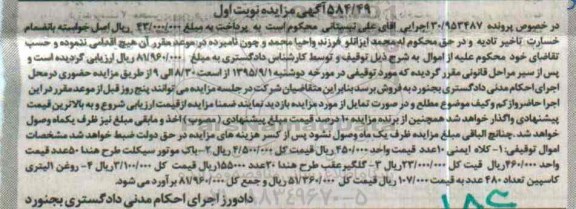 ۵۸۴/۴۹ آگهی مزایده نوبت اول
در خصوص پرونده ۳۰/۹۵۳۴۸۷ اجرایی آقای علی نیستانی محکوم است به پرداخت به مبلغ ۴۳/۰۰۰/۰۰۰ ریال اصل خواسته بانضمام
خسارت تاخیر تادیه و در حق محکوم له محمد ایزانلو فرزند واحیا محمد و چون نامبرده در موعد مقرر آن هیچ اقدامی ننموده و حسب
تقاضای خود محکوم علیه از اموال به شرح ذیل توقیف و توسط کارشناس دادگستری به مبلغ ۸۱/۹۶۰/۰۰۰ ریال ارزیابی گردیده است و
پس از سیر مراحل قانونی مقرر گردیده که مورد توقیفی در مورخه دوشنبه ۱۳۹۵/۹/۱ از ساعت ۸/۳۰ الی ۹ از طریق مزایده حضوری در محل
اجرای احکام مدنی دادگستری بجنورد به فروش برسد بنابراین متقاضیان شرکت در جلسه مزایده می توانند پنج روز قبل از موعد مقرر در این
اجرا حاضر و از کم و کیف موضوع مطلع و در صورت تمایل از مورد مزایده بازدید نمایند ضمنا مزایده از قیمت ارزیابی شروع و به بالاترین قیمت
پیشنهادی واگذار خواهد شد همچنین از برنده مزایده ۱۰ درصد قیمت مبلغ پیشنهادی (مصوب) اخذ و مابقی مبلغ نیز ظرف یکماه وصول
خواهد شد. چنانچ الباقی مبلغ مزایده ظرف یک ماه وصول نشود پس از کسر هزینه های مزایده در حق دولت ضبط خواهد شد. مشخصات
اموال توقیفی: ۱- کلاه ایمنی ۱۰ عدد واحد ۴۵۰/۰۰۰ ریال قیمت کل ۴/۵۰۰/۰۰۰ ریال ۲- باک موتور سیکلت طرح هندا ۵۰ عدد قیمت
واحد ۴۶۰/۰۰۰ ریال قیمت کل ۲۳/۰۰۰/۰۰۰ ریال ۳- گلگیر عقب طرح هندا ۲۰ عدد ۱۵۵۰۰۰ ریال قیمت کل ۳/۱۰۰/۰۰۰ ریال ۴- روغن ۱ لیتری
کاسپین تعداد ۴۸۰ عدد به قیمت ۱۰۷/۰۰۰ ریال قیمت کل ۵۱/۳۶۰/۰۰۰ ریال و جمع کل ۸۱/۹۶۰/۰۰۰ برآورد می شود.
دادورز اجرای احکام مدنی دادگستری بجنورد